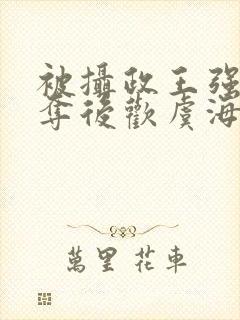 被攝政王强
奪後歡虞海
萬里 花車